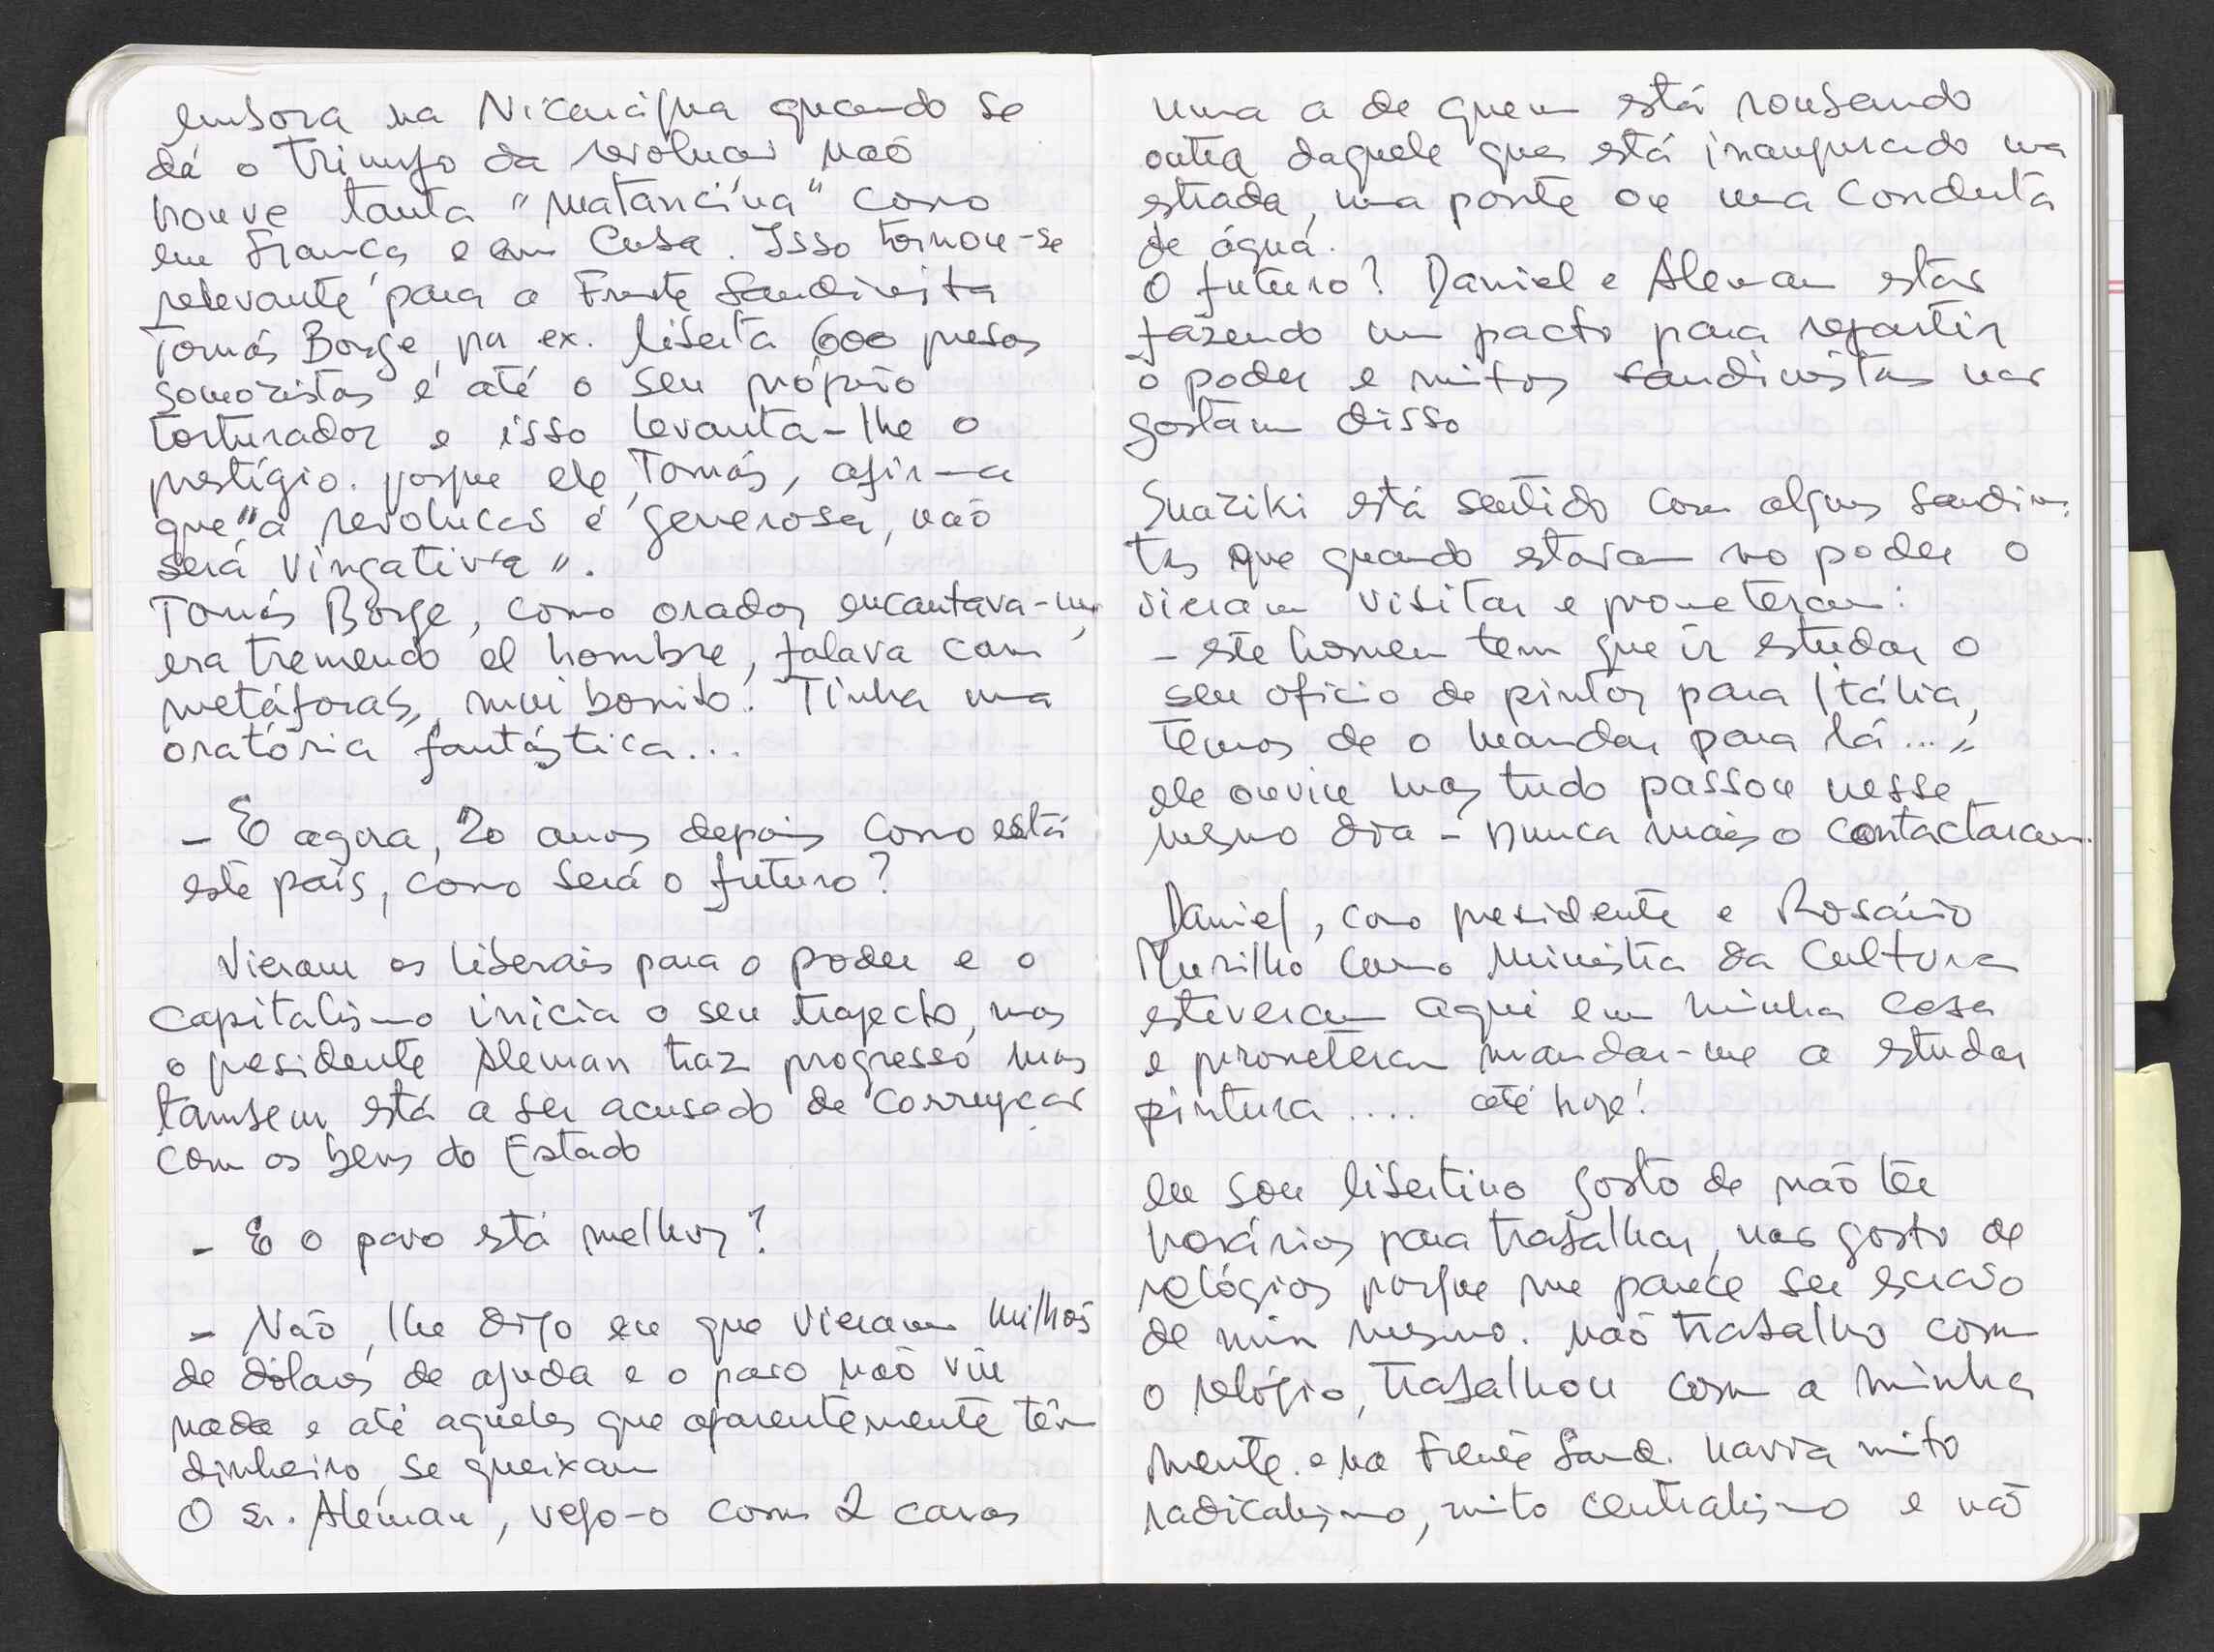 embora na Nicarágua quando se
dá o triunfo da revolucão não
houve tanta "matancina" como
em França e em Cuba. Isso tornou-se
relevante para a Frente Sandinista
Tomás Borge, por ex. liberta 600 presos
somozistas e até o seu próprio
torturador e isso levanta-lhe o
prestígio. porque ele, Tomás, afirma
que "a revolucão é generosa, não
será vingativa".
Tomás Borge, como orador encantava-me,
era tremendo el hombre, falava com
metáforas, mui bonito! Tinha uma
oratória fantástica...
- E agora, 20 anos depois como está
este país, como será o futuro?
Vieram os liberais para o poder e o
capitalismo inicia o seu trajecto, mas
o presidente Aleman traz progresso mas
tambem está a ser acusado de corrupcão
com os bens do Estado
- E o povo está melhor?
- Não, lhe digo eu que vieram milhões
de dólares de ajuda e o povo não viu
nada e até aqueles que aparentemente têm
dinheiro, se queixam
O Sr. Aleman, vejo-o com 2 caras
uma a de quem está roubando
outra daquele que está inaugurado uma
estrada, uma ponte ou uma conduta
de água.
O futuro? Daniel e Aleman estão
fazendo um pacto para repartir
o poder e muitos sandinistas não
gostam disso
Suaziki está sentido com alguns sandinis
tas que quando estavam no poder o
vieram visitar e prometeram:
- este homem tem que ir estudar o
seu oficio de pintor para Itália,
temos de o mandar para lá..."
ele ouviu mas tudo passou nesse
mesmo dia - nunca mais o contactaram.
Daniel, como presidente e Rosário
Murilho como Ministra da Cultura
estiveram aqui em minha casa
e prometeram mandar-me a estudar
pintura .... até hoje!
eu sou libertino gosto de não ter
horários para trabalhar, não gosto de
relógios porque me parece ser escravo
de mim mesmo. não trabalho com
o relógio, trabalhou com a minha
mente. e na Frente Sand. havia muito
radicalismo, muito centralismo e não